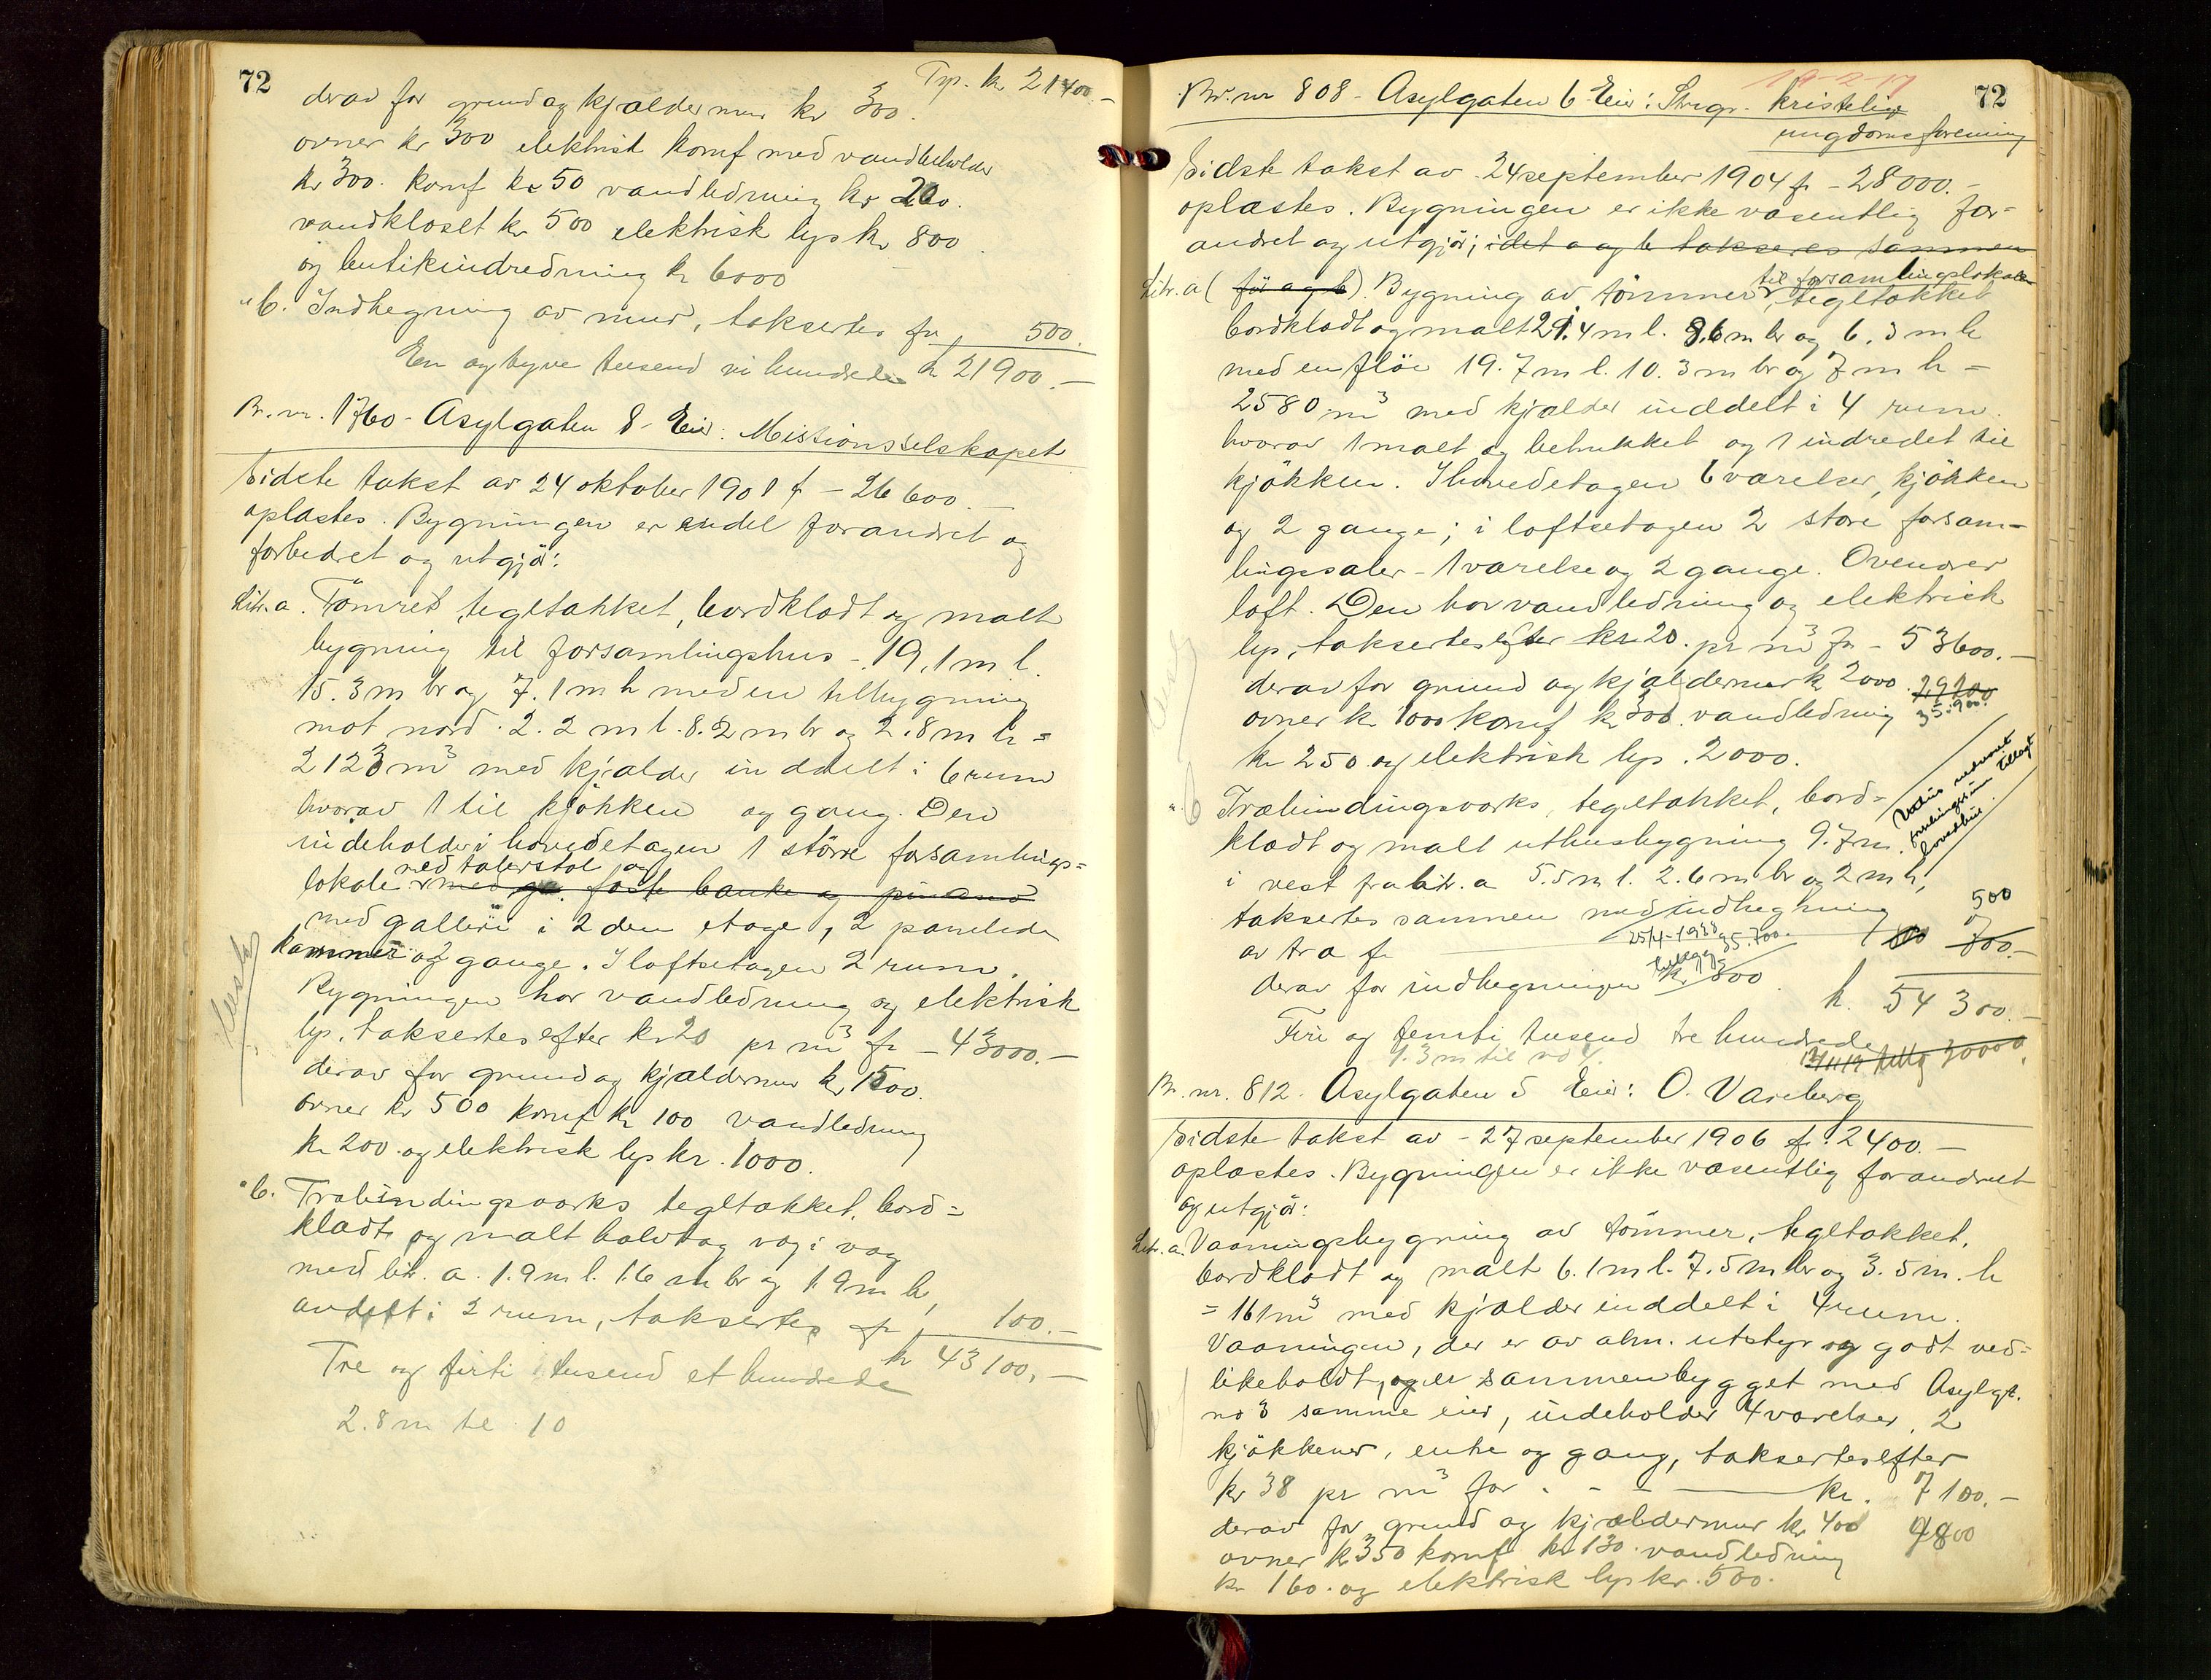 72
Trp. kr 21400.-
derav for grund og kjældermur kr 300.
ovner kr 300 elektrisk komf med vandbeholder
kr 300. komf kr 50 vandledning kr 200.
vandkloset kr 500 elektrisk lys kr 800
og butikindredning kr 6000
"b. Indhegning av mur, takseres for 500.
En og tyve tusend ni hundrede kr 21900.-
Br. nr. 1760 - Asylgaten 8 - Eier: Missionsselskapet
Sidste takst av 24 oktober 1901 f - 26 600.-
oplæstes. Bygningen er endel forandret og
forbedret og utgjör:
Litr. a. Tömret, tegltakket, bordklædt og malt
bygning til forsamlingshus - 19,1 m l.
15.3 m br og 7.1 m h med en tilbygning
mot nord 2.2 m l. 8.2 m br og 2.8 m h =
2123 m³ med kjælder inddelt i 6 rum
hvorav 1 til kjökken og gang. Den
indeholder i hovedetagen 1 större forsamlings=
ved talerstol og
lokale med faste bænke og
med galleri i 2den etage, 2 panelede
kammer og 2 gange. I loftsetagen 2 rum.
Bygningen har vandledning og elektrisk
lys, takseres efter kr 20 pr m³ fr - 43000.-
derav for grund og kjældermur kr 1500.
ovner kr 500 komf kr 100 vandledning
kr 200 og elektrisk lys kr. 1000.
"b. Træbindingsværks tegltækket, bord=
klædt og malt halvtag væg i væg
med litr. a. 1.9 m l. 1.6 m br og 1.9 m h,
avdelt i 2 rum, takseres fr 100.-
kr 43100,-
Tre og firti tusend et hundrede
2.8 m til 10
72
Br. nr 808 - Asylgaten 6 Eier: Stvgr. kristelige
ungdomsforening
Sidste takst av 24 september 1904 fr - 28000.-
oplæstes. Bygningen er ikke væsentlig for=
andret og utgjör; idet a og b takseres sammen
til forsamlingslokale
Litr. a (för a og b). Bygning av tömmer, tegltækket
bordklædt og malt 21.4 m l. 8.6 m br og 6.3 m h
med en flöi 19.7 m l. 10.3 m br og 7 m h =
2580 m³ med kjælder inddelt i 4 rum.
hvorav 1 malt og betrukket og 1 indredet til
kjökken. I hovedetagen 6 værelser, kjökken
og 2 gange; i loftsetagen 2 store forsam=
lingssaler - 1 værelse og 2 gange. Ovenover
loft. Den har vandledning og elektrisk
lys, takseres efter kr 20. pr m³ fr - 53600.-
derav for grund og kjældermur kr 2000. 29200
35.900.
ovner kr 1000 komf kr 300. vandledning
kr 250 og elektrisk lys. 2000.
"b Træbindingsværks, tegltækket, bord=
klædt og malt uthusbygning 9.7 m.
i vest fra litr. a 5.5 m l. 2.6 m br og 2 m h,
takseres sammen med indhegning 500
av træ fr 700.-
25/4-1938 35.700.-
derav for indhegningen kr 300.
kr. 54300.-
Fire og femti tusend tre hundrede
9.3 m til no 4.
tillæg 30000
Br. nr. 812 - Asylgaten 5 Eier: O. Vareberg
Sidste takst av - 27 september 1906 fr. 2400.-
oplæstes. Bygningen er ikke væsentlig forandret
og utgjör:
Litr. a. Vaaningsbygning av tömmer, tegltækket,
bordklædt og malt 6.1 m l. 7.5 m br og 3.5 m. h
= 161 m³ med kjælder inddelt i 4 rum.
Vaaningen, der er av alm. utstyr og godt ved=
likeholdt, og er sammenbygget med Asylgt.
no 3 samme eier, indeholder 4 værelser, 2
kjökkener, entre og gang, takseres efter
kr 38 pr m³ for . - - kr. 7100.-
derav for grund og kjældermur kr 400
9800
ovner kr 350 komf kr 130. vandledning
kr 160. og elektrisk lys kr. 500.